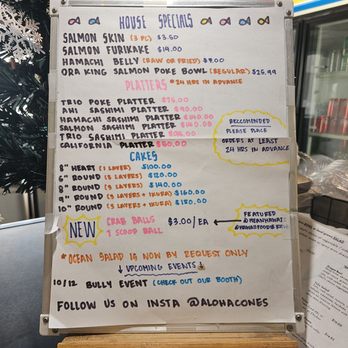 HOUSE SPECIALS
SALMON SKIN (3 PC) $3.50
SALMON FURIKAKE $14.00
HAMACHI BELLY (RAW OR FRIED) $9.00
ORA KING SALMON POKE BOWL (REGULAR) $25.99
PLATTERS *24 HRS IN ADVANCE
TRIO POKE PLATTER
AHI SASHIMI PLATTER
HAMACHI SASHIMI PLATTER
SALMON SASHIMI PLATTER
TRIO SASHIMI PLATTER
CALIFORNIA PLATTER
RECOMMENDED
PLEASE PLACE
ORDERS AT LEAST
24 HRS IN ADVANCE
CAKES
8" HEART (1 LAYER) $100.00
6" ROUND (3 LAYERS) $120.00
8" ROUND (3 LAYERS) $140.00
9" ROUND (3 LAYERS + IKURA) $160.00
10" ROUND (3 LAYERS + IKURA) $180.00
NEW
CRAB BALLS
1 SCOOP BALL
$3.00/EA
FEATURED
*OCEAN SALAD IS NOW BY REQUEST ONLY
UPCOMING EVENTS
10/12 BULLY EVENT (CHECK OUT OUR BOOTH)
FOLLOW US ON INSTA @ALOHACONES